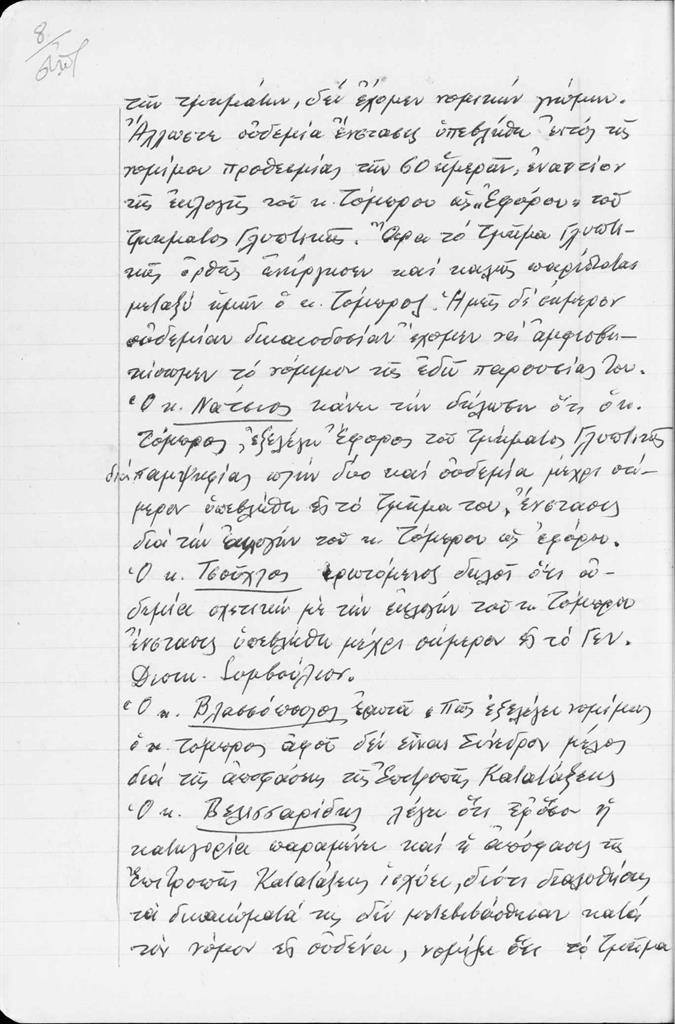 8
τῶν τμημάτων, δέν ἔχομεν νομικήν γνώμην.
Ἄλλωστε οὐδεμία ἔνστασις ὑπεβλήθη ἐντός τῆς
νομίμου προθεσμίας τῶν 60 ἡμερῶν, ἐναντίον
τῆς ἐκλογῆς τοῦ κ. Τόμπρου ὡς "Ἐφόρου" τοῦ
Τμήματος Γλυπτικῆς. Ἄρα τό Τμῆμα Γλυπτι-
κῆς ὀρθῶς ἐνήργησεν καί καλῶς παρίσταται
μεταξύ ἡμῶν ὁ κ. Τόμπρος. Ἡμεῖς δέ σήμερον
οὐδεμίαν δικαιοδοσίαν ἔχομεν νά ἀμφισβη-
τήσωμεν τό νόμιμον τῆς ἐδῶ παρουσίας του.
Ὁ κ. Νάτσιος κάνει τήν δήλωσιν ὅτι ὁ κ.
Τόμπρος, ἐξελέγη Ἔφορος τοῦ Τμήματος Γλυπτικῆς
διά παμψηφίας πλήν δύο καί οὐδεμία μέχρι σή-
μερον ὑπεβλήθη εἰς τό Τμῆμα του, ἔνστασις
διά τήν ἐκλογήν τοῦ κ. Τόμπρου ὡς ἐφόρου.
Ὁ κ. Τσοῦχλος ἐρωτόμενος δηλοῖ ὅτι οὐ-
δεμία σχετική μέ τήν ἐκλογήν τοῦ κ. Τόμπρου
ἔνστασις ὑπεβλήθη μέχρι σήμερον εἰς τό Γεν.
Διοικ. Συμβούλιον.
Ὁ κ. Βλασσόπουλος ἐρωτᾶ, πῶς ἐξελέγει νομίμως
ὁ κ. Τόμπρος ἀφοῦ δέν εἶναι Σύνεδρον μέλος
διά τῆς ἀποφάσεως τῆς Ἐπιτροπῆς Κατατάξεως
Ὁ κ. Βελισσαρίδης λέγει ὅτι ἐφ' ὅσον ἡ
κατηγορία παραμένει καί ἡ ἀπόφασις τῆς
Ἐπιτροπῆς Κατατάξεως ἰσχύει, διότι διαλυθείσης
τά δικαιώματά της δέν μετεβιβάσθησαν κατά
τόν νόμον εἰς οὐδένα, νομίζει ὅτι τό Τμῆμα